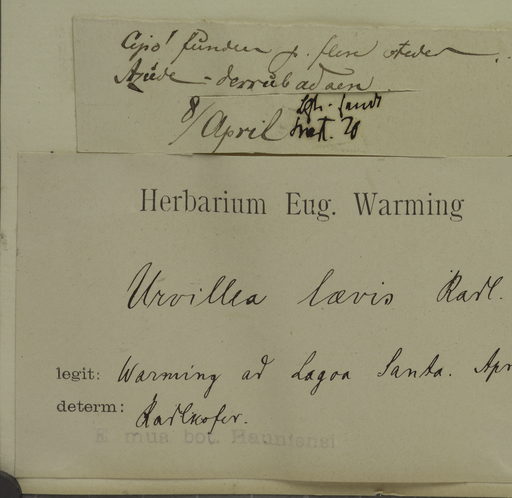 Cipó! funden p. flere steder
Açude - derrubadaen
8/April
Herbarium Eug. Warming
Urvillea lævis Radl.
legit: Warming ad Lagoa Santa. Apr
determ: Radlkofer.
E mus bot. Hauniensi